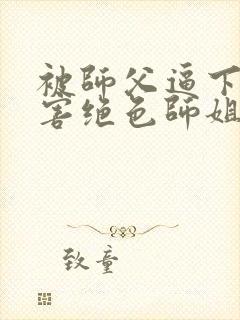 被師父逼下
害绝色師姐
致童